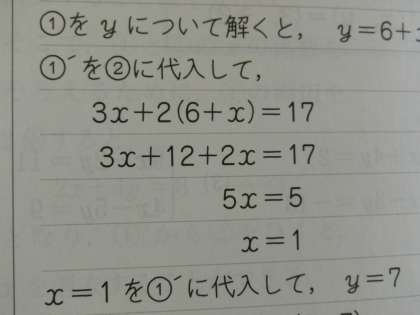 ①を y について解くと， y=6+x
①´を②に代入して，
3x+2(6+x)=17
3x+12+2x=17
5x=5
x=1
x=1 を①´に代入して， y=7